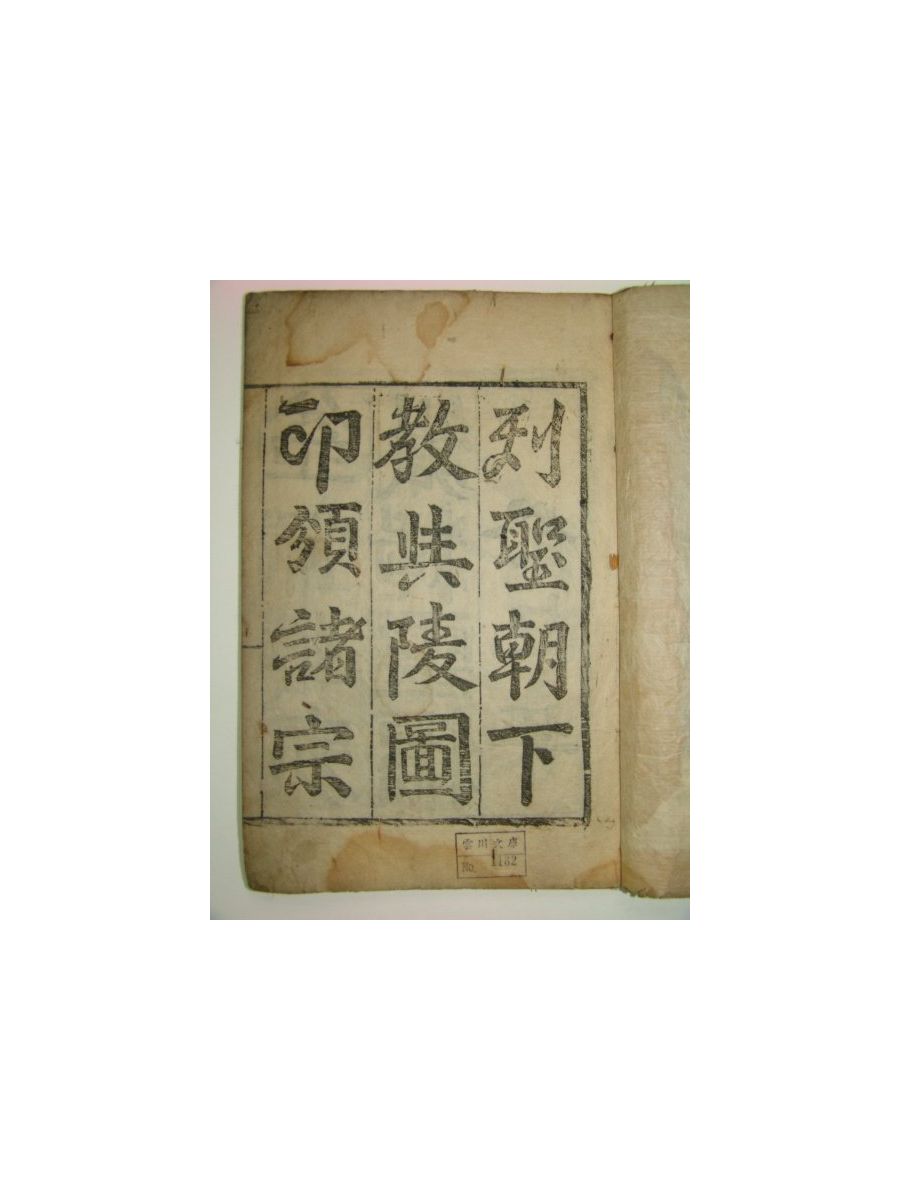 列聖朝下
教與陵圖
印頒諸宗
雲川文庫
No. 1182